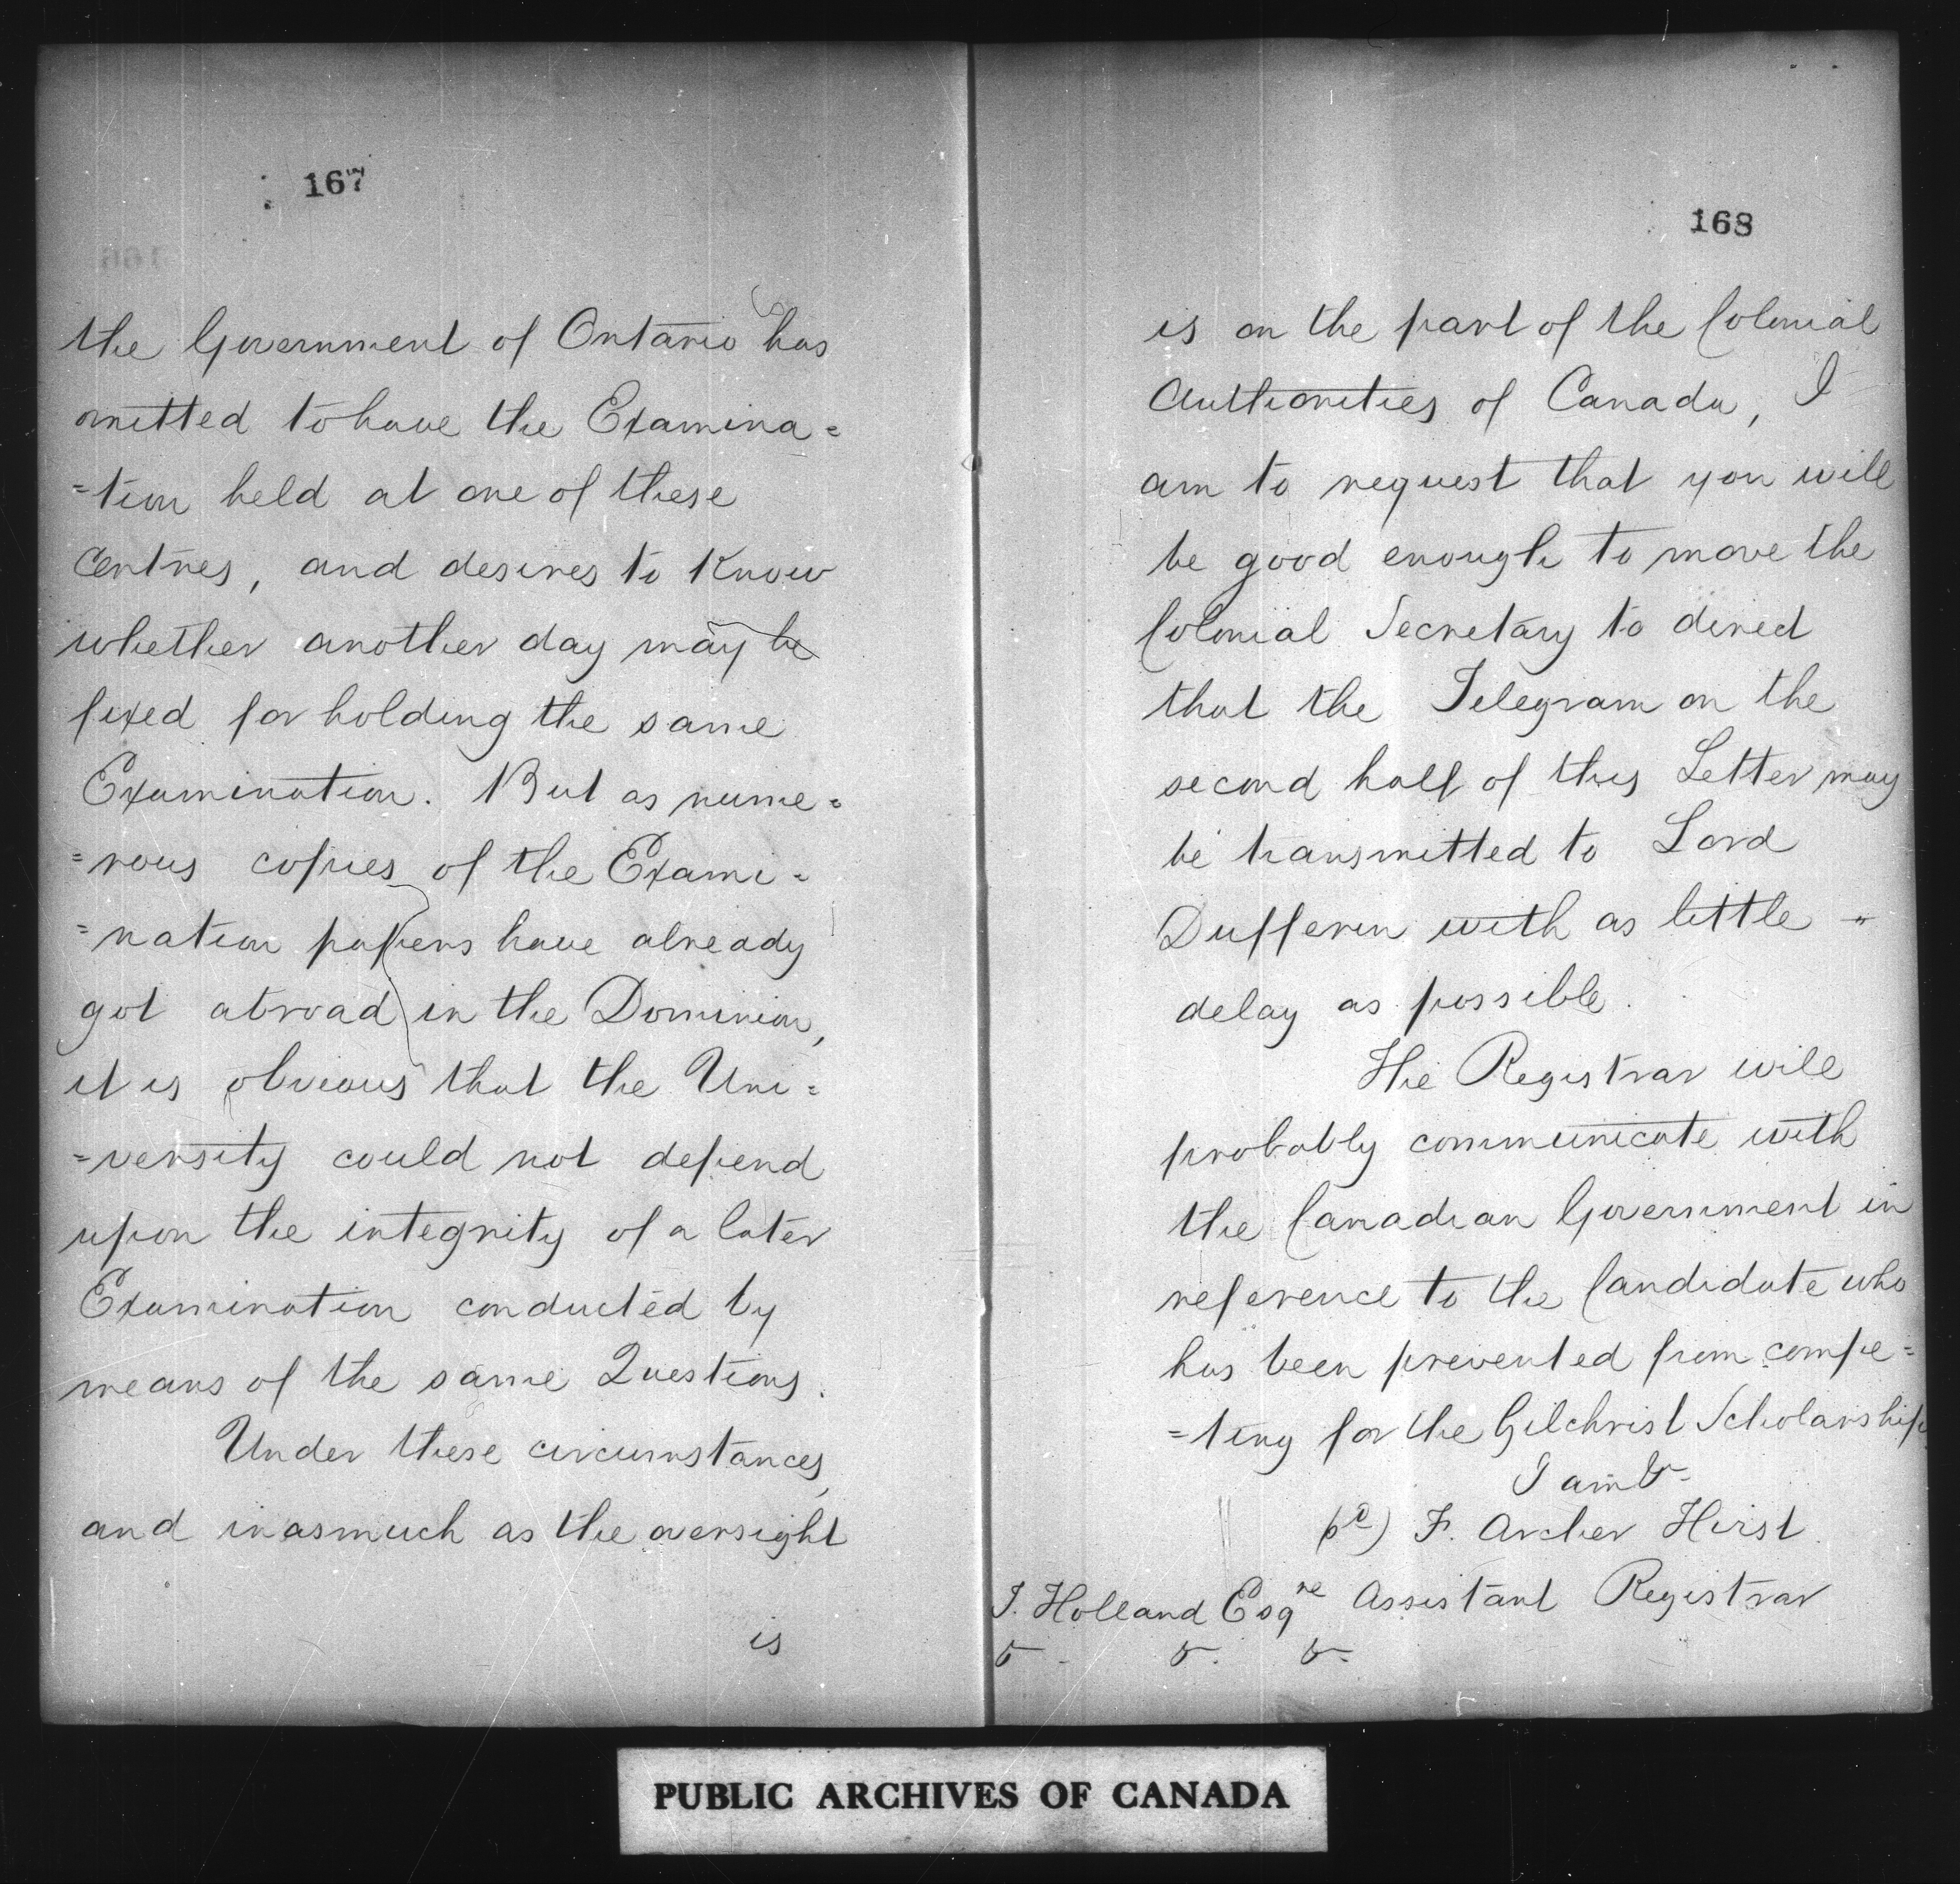 167
the Government of Ontario has
omitted to have the Examina=
=tion held at one of these
Centres, and desires to know
whether another day may be
fixed for holding the same
Examination. But as nume=
=rous copies of the Exami=
=nation papers have already
got abroad in the Dominion,
it is obvious that the Uni=
=versity could not depend
upon the integrity of a later
Examination conducted by
means of the same Questions.
Under these circumstances,
and inasmuch as the oversight
is
168
is on the part of the Colonial
Authorities of Canada, I
am to request that you will
be good enough to move the
Colonial Secretary to direct
that the Telegram on the
second half of this Letter may
be transmitted to Lord
Dufferin with as little
delay as possible.
The Registrar will
probably communicate with
the Canadian Government in
reference to the Candidate who
has been prevented from compe=
=ting for the Gilchrist Scholarship
I am &
F. Archer Hirst
Assistant Registrar
T. Holland Esqre
& & &
PUBLIC ARCHIVES OF CANADA